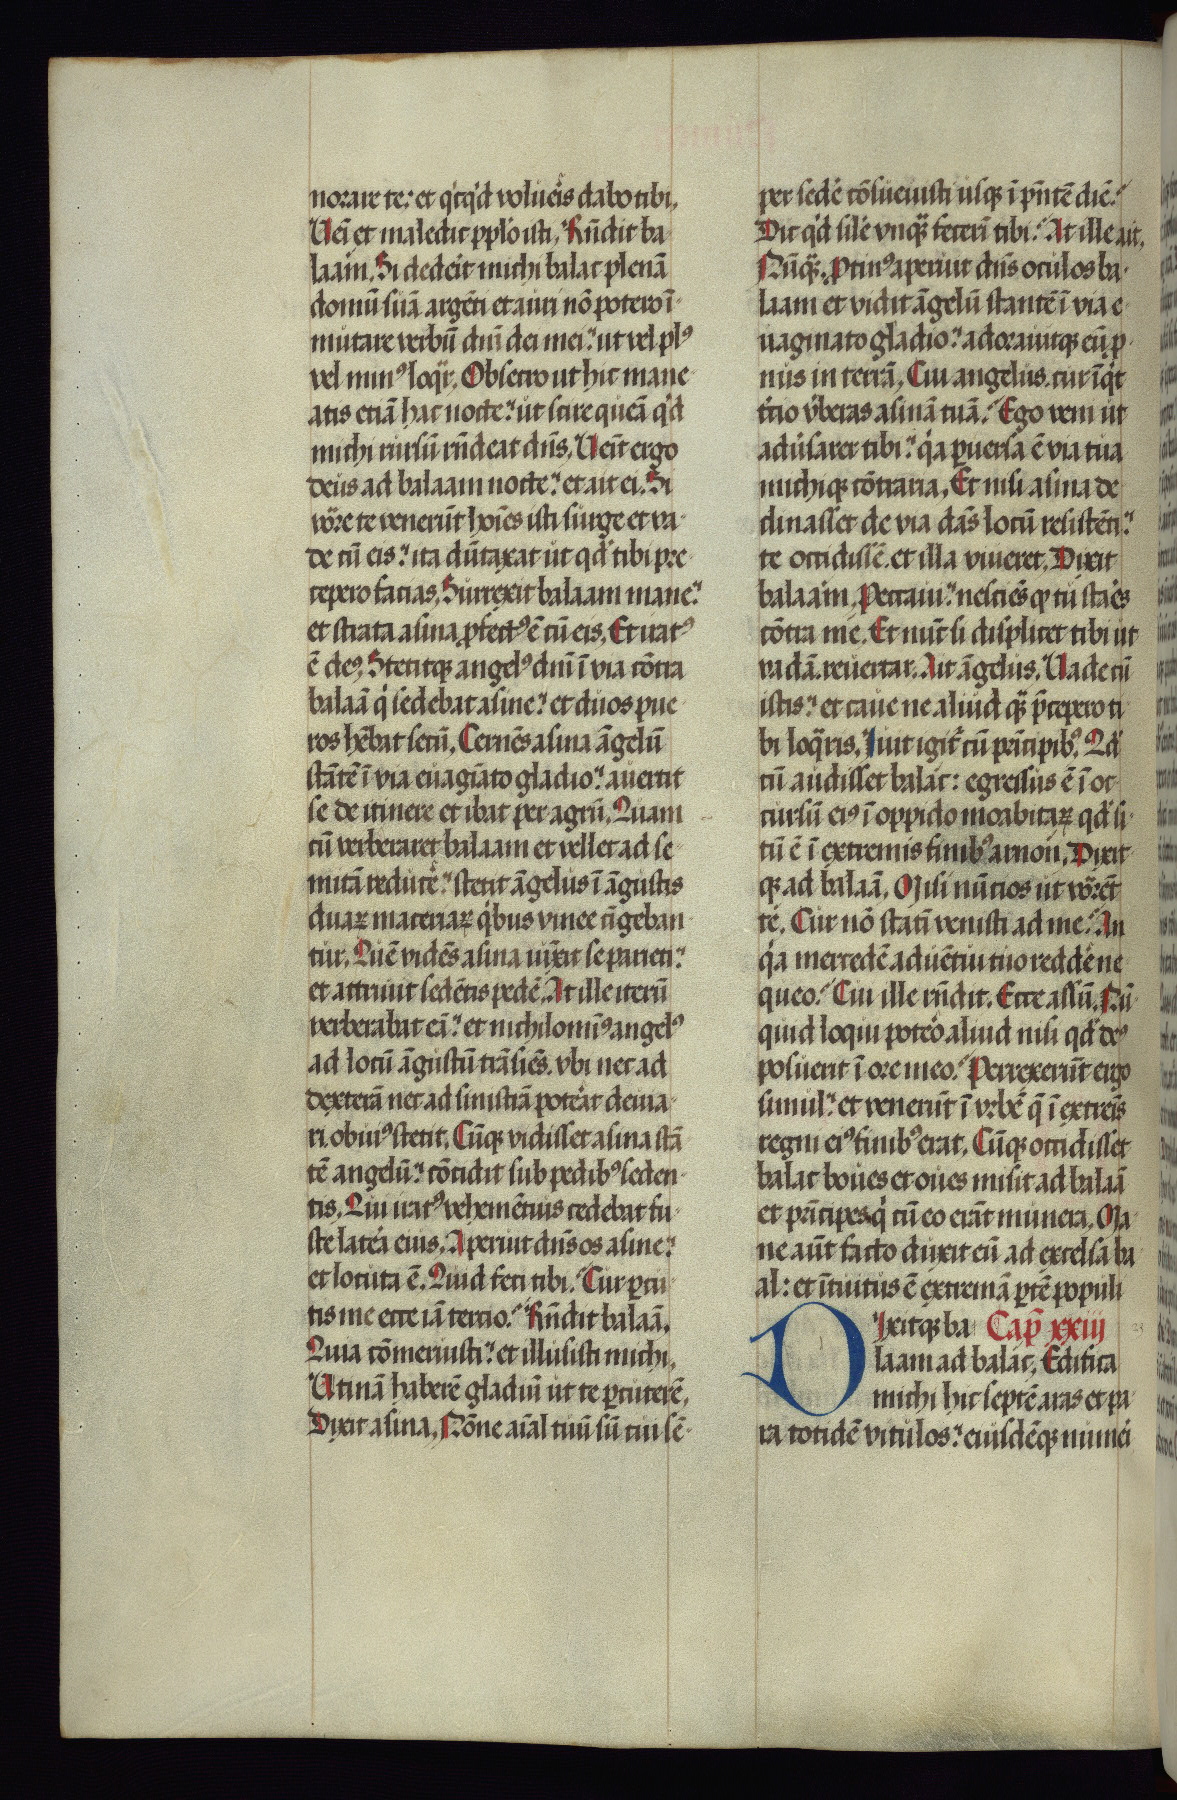 norare te: et qͥcqͥd volueris dabo tibi.
Veni et maledic pplo isti. Rn̄dit ba
laam. Si dederit michi balac plenā
domū suā argēti et auri nō potero ī-
mutare verbū dn̄i dei mei: ut vel plꝰ
vel minꝰ loqͣr. Obsecro ut hic mane
atis etiā hac nocte: ut scire queā qͥd
michi rursū rn̄deat dn̄s. Venit ergo
deus ad balaam nocte: et ait ei. Si
vocare te venerūt hoīes isti surge et va-
de cū eis: ita dūtaxat ut qd tibi pre
cepero facias. Surrexit balaam mane:
et strata asina ꝓfectꝰ ē cū eis. Et iratꝰ
ē deꝰ. Stetitqꝫ angelꝰ dn̄i ī via cōtra
balaā qͥ sedebat asine: et duos pue
ros hēbat secū. Cernēs asina āgelū
stātē ī via euagīato gladio: auertit
se de itinere et ibat per agrū. Quam
cū verberaret balaam et vellet ad se-
mitā reducere: stetit āgelus ī āgustis
duaꝝ maceriaꝝ qͥbus vinee cīgeban
tur. Quē vidēs asina iūxit se parieti:
et attriuit sedētis pedē. At ille iterū
verberabat eā: et nichilominꝰ angelꝰ
ad locū āgustū trāsiēs. vbi nec ad
dexterā nec ad sinistrā poterat deuia-
ri obuiꝰ stetit. Cūqꝫ vidisset asina stā
tē angelū: cōcidit sub pedibꝰ seden-
tis. Qui iratꝰ vehemētius cedebat fu-
ste latera eius. Aperuit dn̄s os asine:
et locuta ē. Quid feci tibi. Cur ꝑcu-
tis me ecce iā tercio. Rn̄dit balaā.
Quia cōmeruisti: et illusisti michi.
Utinā haberē gladiū ut te ꝑcuterē.
Dixit asina. Nōne aīal tuū sū cui se-
per sedere cōsueuisti usqꝫ ī pn̄tē diē.
Dic qͥd sile vnqͣ fecerī tibi. At ille ait.
Nūqͣ. Ptinꝰ aperuit dn̄s oculos ba-
laam et vidit āgelū stantē ī via e-
uaginato gladio: adorauitqꝫ eū ꝓ-
nus in terrā. Cui angelus. cur īqͥt
tercio vberas asinā tuā. Ego veni ut
adusarer tibi: qͥa ꝑuersa ē via tua
michiqꝫ cōtraria. Et nisi asina de
clinasset de via dās locū resistēti:
te occidissē. et illa viueret. Dixit
balaam. Peccaui: nesciēs qꝫ tu stares
cōtra me. Et nūc si displicet tibi ut
vadā. reuertar. Ait āgelus. Uade cū
istis: et caue ne aliud qͣ p̄cepero ti
bi loqͣris. Iuit igitͬ cū prīcipibꝰ. Qd
cū audisset balac: egressus ē ī oc
cursū eiꝰ ī oppido moabitaꝝ qd si-
tū ē ī extremis finibꝰ arnon. Dixit-
qꝫ ad balaā. Misi nūcios ut vocarēt
te. Cur nō statī venisti ad me. An
qͥa mercedē aduētui tuo reddere ne
queo. Cui ille rn̄dit. Ecce assū. Nū-
quid loqui potero aliud nisi qd deꝰ
posuerit ī ore meo. Perrexerūt ergo
simul: et venerūt ī vrbē q̄ ī extreīs
regni eiꝰ finibꝰ erat. Cūqꝫ occidisset
balac boues et oues misit ad balaā
et prīcipes qͥ cū eo erāt munera. Ma-
ne aūt facto duxit eū ad excelsa ba
al: et ītuitus ē extremā ꝑtē populi
Dixitqꝫ ba Cap̄ xxiij
laam ad balac. Edifica
michi hic septē aras et pa-
ra totidē vitulos: eiusdēqꝫ numeri